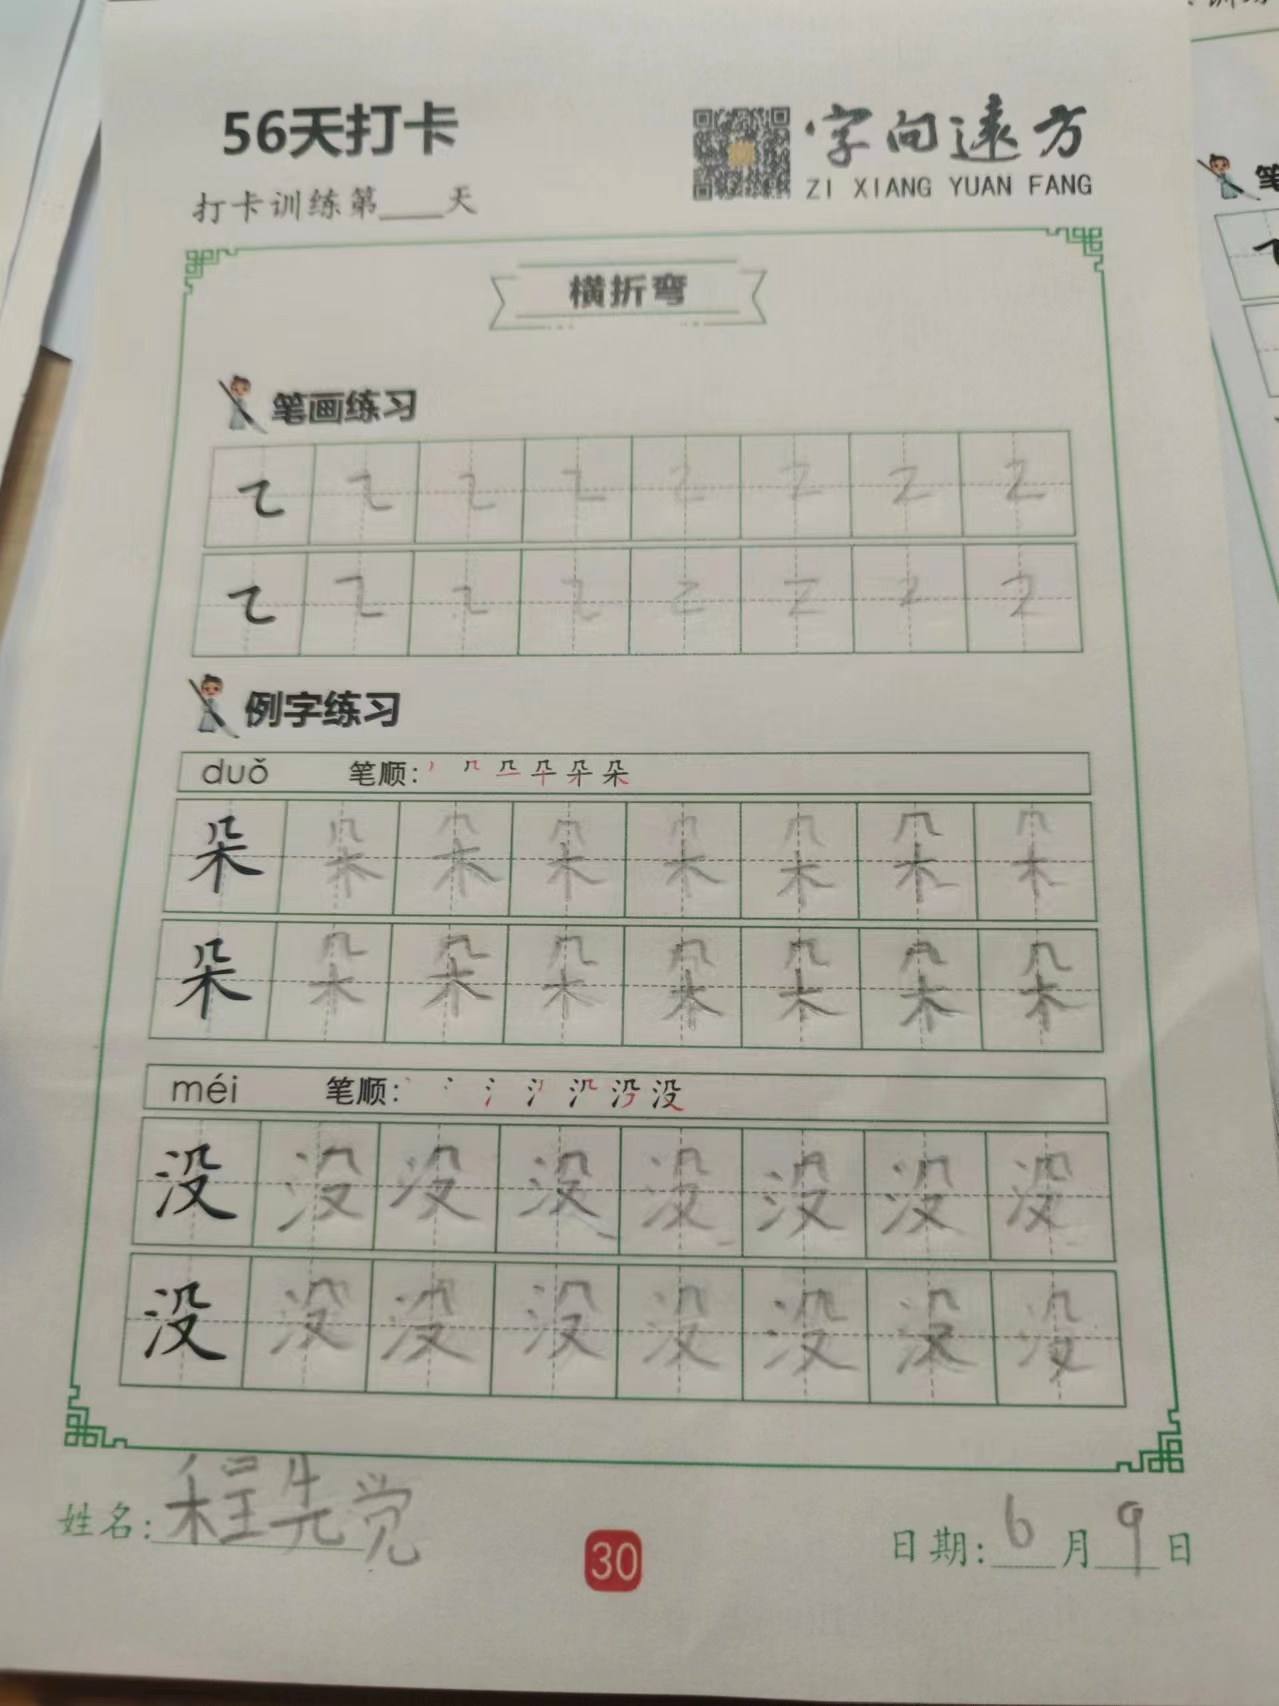 56天打卡
字向遠方
打卡训练第____天
ZI XIANG YUAN FANG
横折弯
笔画练习
例字练习
duǒ 笔顺:
朵 朵 朵 朵 朵 朵 朵 朵
朵 朵 朵 朵 朵 朵 朵 朵
méi 笔顺:
没 没 没 没 没 没 没 没
没 没 没 没 没 没 没 没
姓名:程先觉
30
日期:6月9日